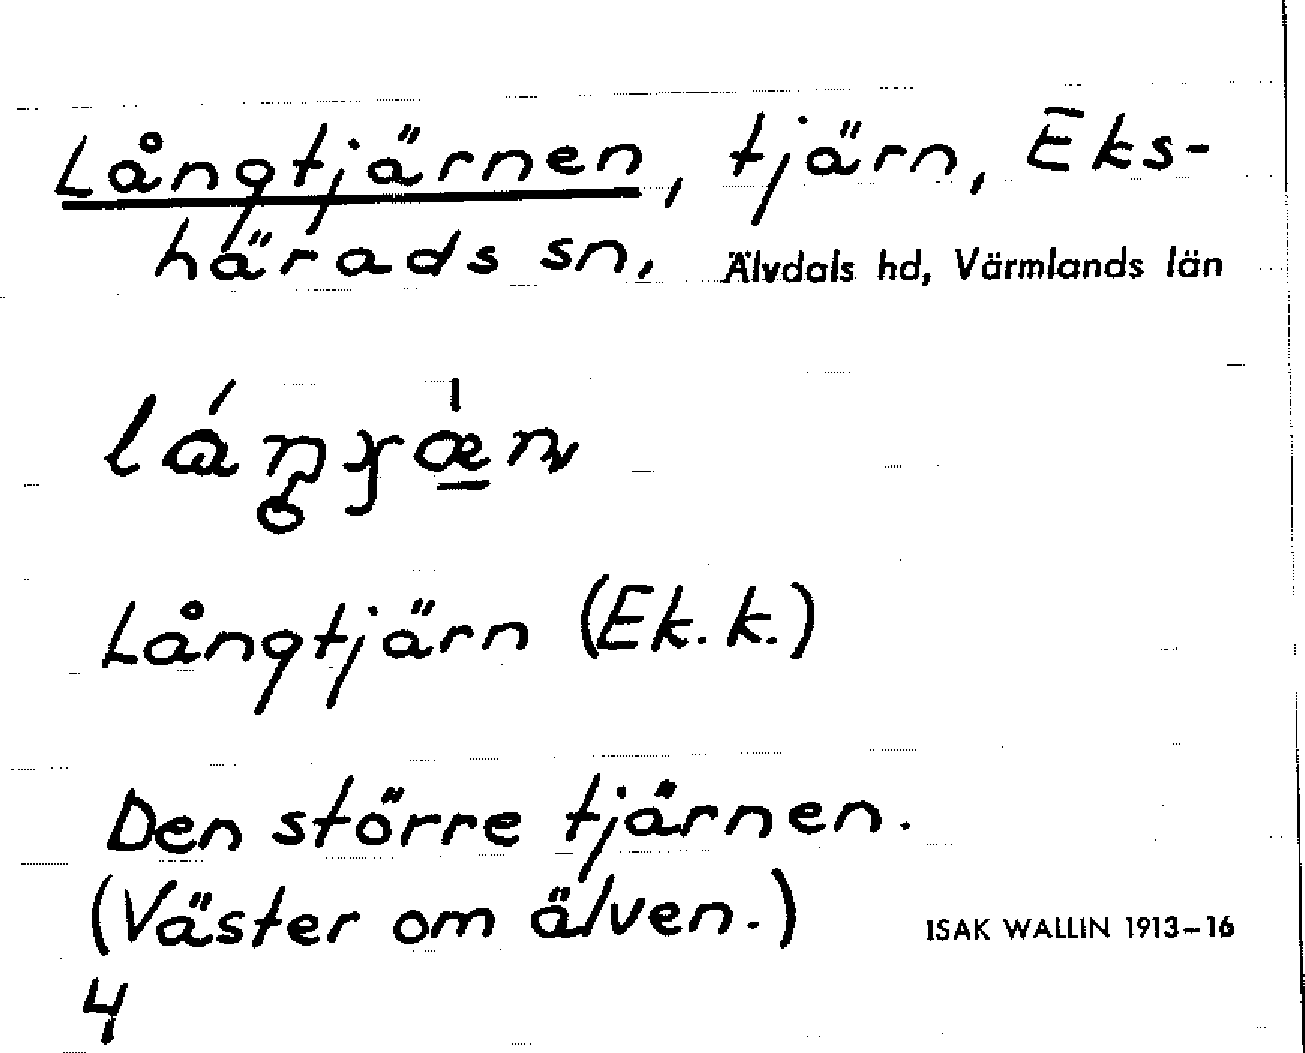 Långtjärnen, tjärn, Eks-
härads sn, Älvdals hd, Värmlands län
Långtjärn (Ek. k.)
Den större tjärnen.
(Väster om älven.)
ISAK WALLIN 1913–16
4